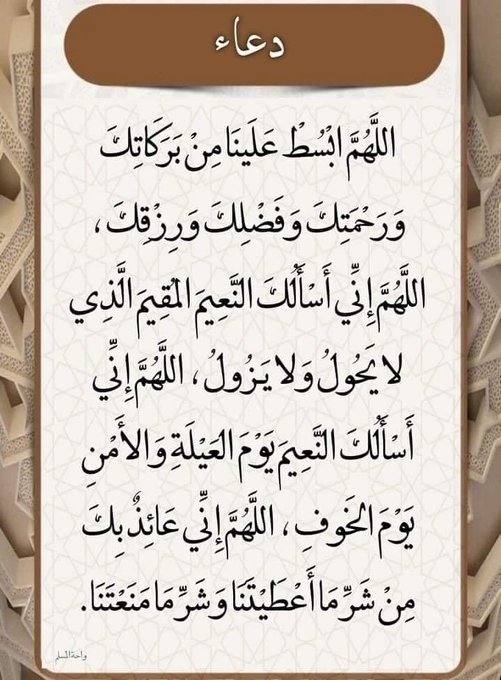 دعاء
اللَّهُمَّ ابْسُطْ عَلَينَا مِنْ بَرَكَاتِكَ
وَرَحْمَتِكَ وَفَضْلِكَ وَرِزْقِكَ ،
اللَّهُمَّ إِنِّي أَسْأَلُكَ النَّعِيمَ المُقِيمَ الَّذِي
لا يَحُولُ وَلا يَزُولُ ، اللَّهُمَّ إِنِّي
أَسْأَلُكَ النَّعِيمَ يَوْمَ العَيْلَةِ وَالأَمْنِ
يَوْمَ الخَوفِ ، اللَّهُمَّ إِنِّي عَائِذٌ بِكَ
مِنْ شَرِّ مَا أَعْطَيْتَنَا وَشَرِّ مَا مَنَعْتَنَا.
واحة المسلم